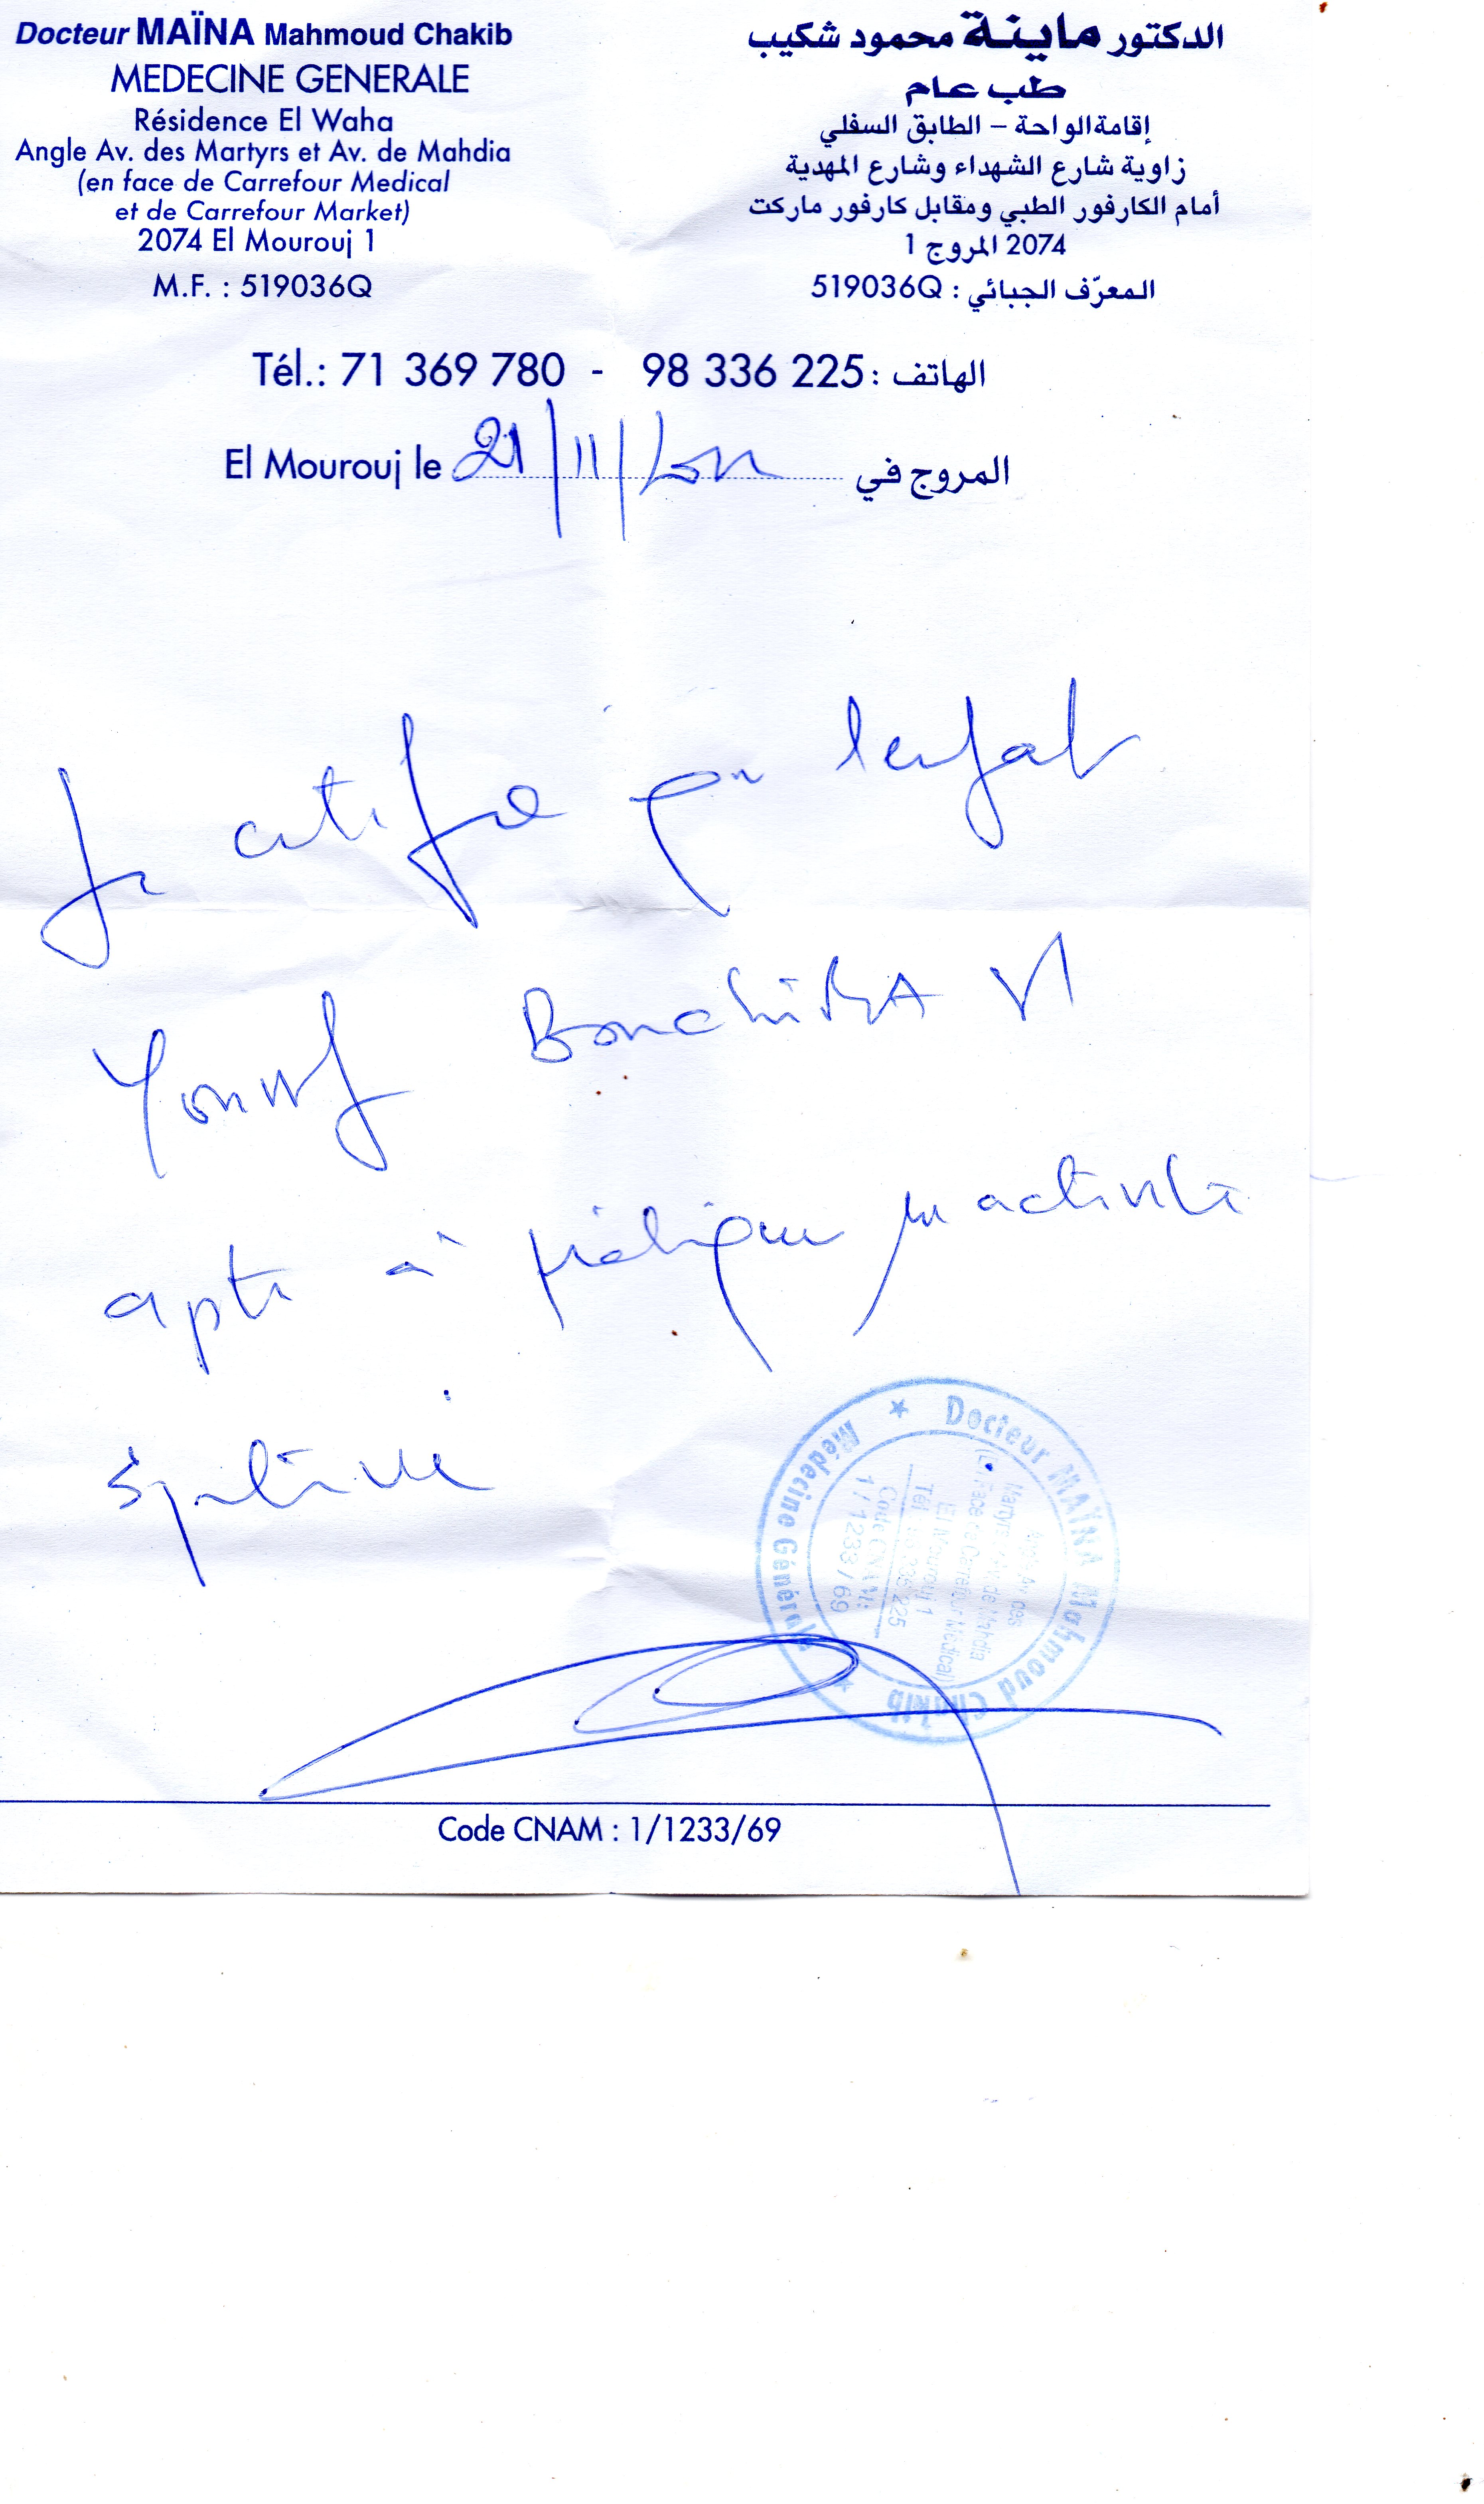 Docteur MAÏNA Mahmoud Chakib
MEDECINE GENERALE
Résidence El Waha
Angle Av. des Martyrs et Av. de Mahdia
(en face de Carrefour Medical
et de Carrefour Market)
2074 El Mourouj 1
M.F. : 519036Q
الدكتور ماينة محمود شكيب
طب عام
إقامة الواحة – الطابق السفلي
زاوية شارع الشهداء وشارع المهدية
أمام الكارفور الطبي ومقابل كارفور ماركت
2074 المروج 1
المعرّف الجبائي : 519036Q
Tél.: 71 369 780 - 98 336 225 : الهاتف
El Mourouj le 21/11/ المروج في
Je certifie que l'enfant
Youssef
apte à pratiquer une activité
sportive
Docteur MAÏNA Mahmoud Chakib
Médecine Générale
Martyrs et Av. de Mahdia
(en Face de Carrefour Medical)
El Mourouj 1
Code CNAM:
1/1233/69
Code CNAM : 1/1233/69